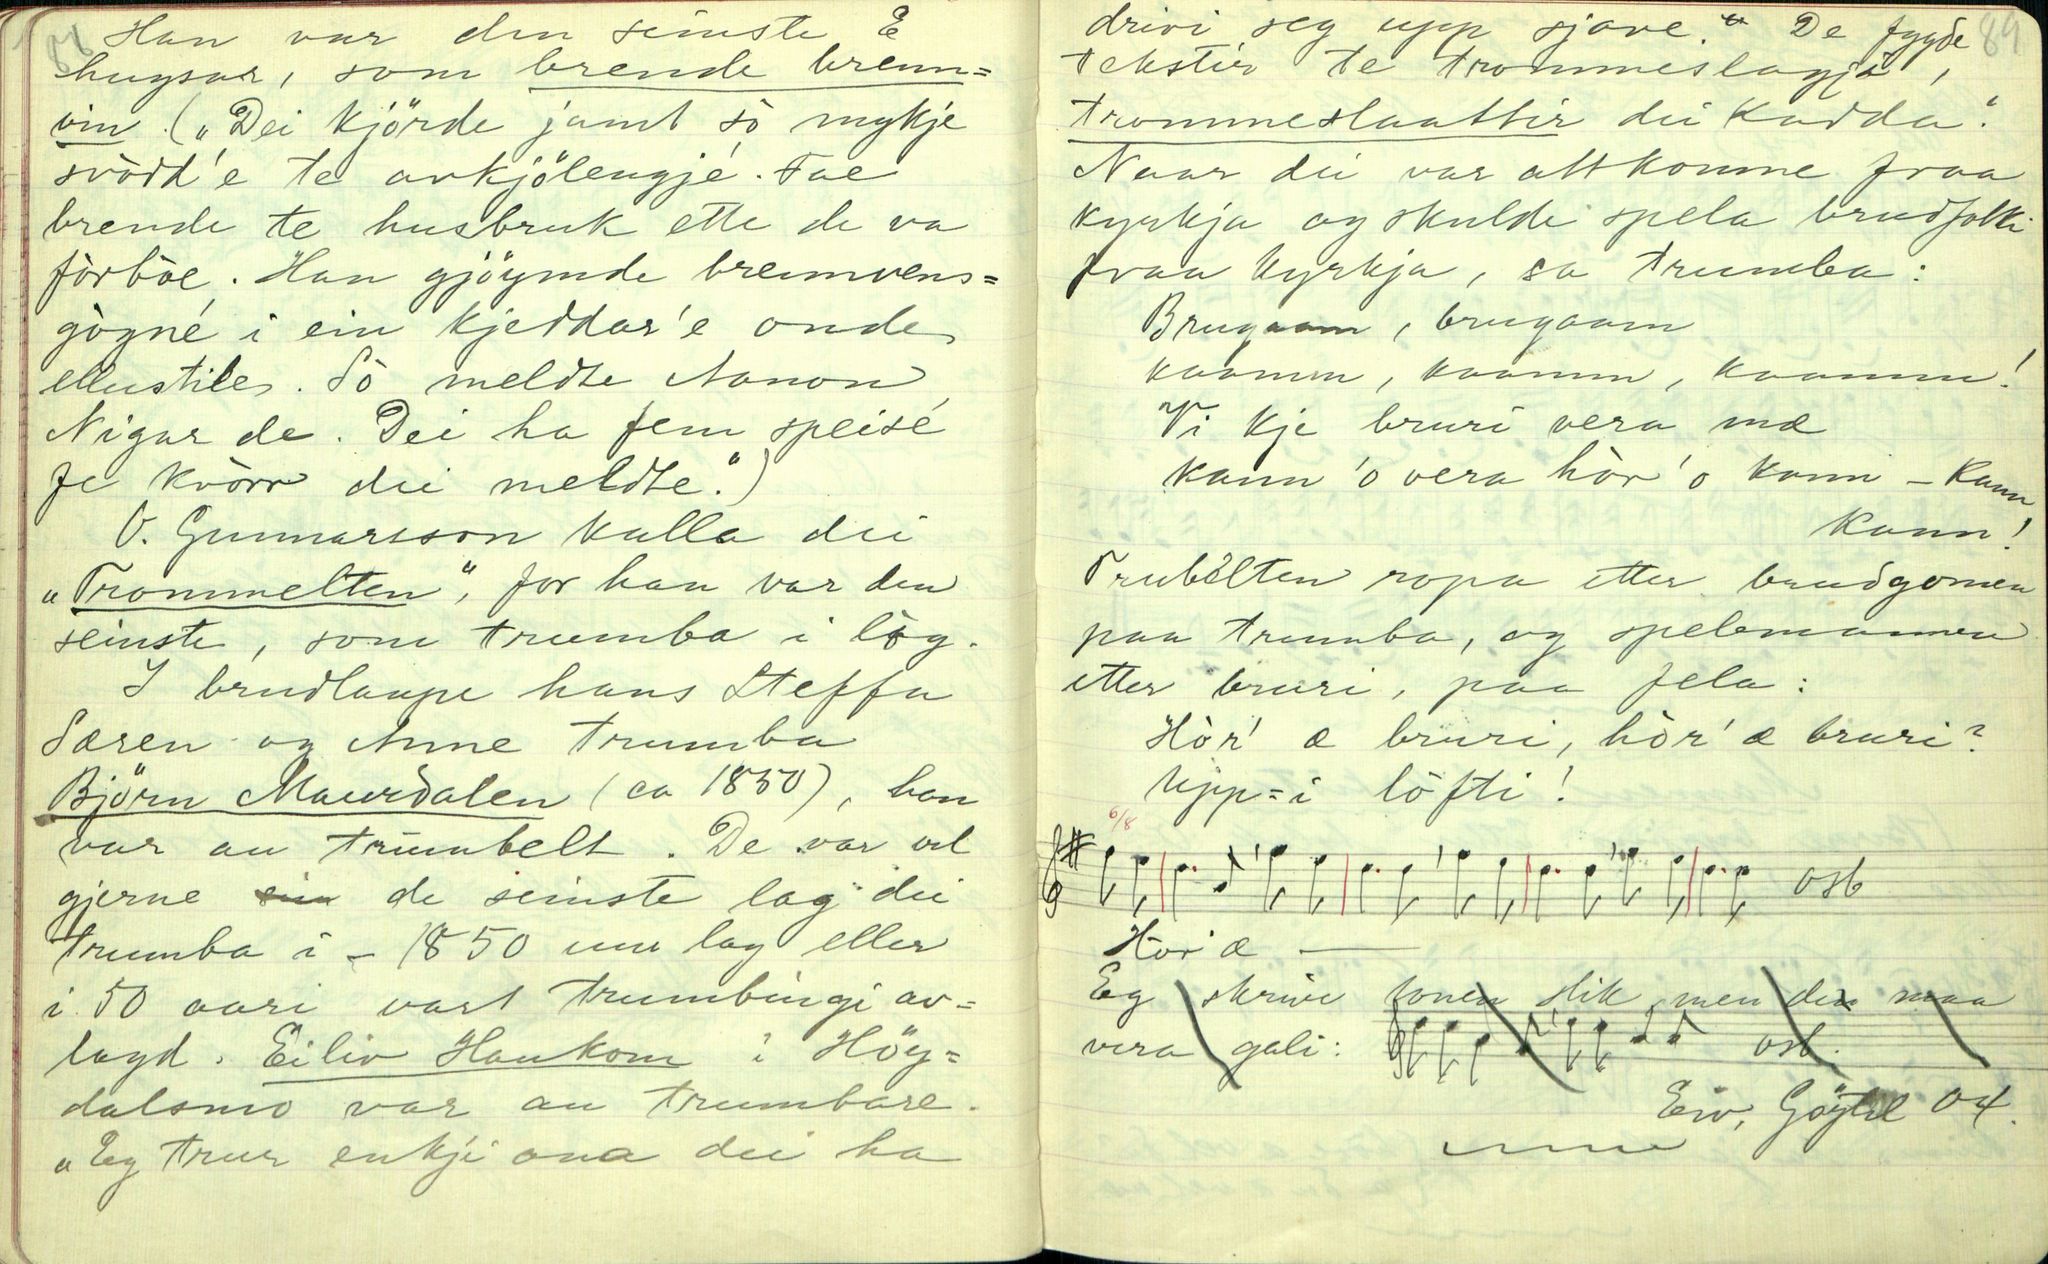 Han var den seinste E
hugsar, som brende brenn=
vin. („Dei kjörde jamt sò mykje
svòdd'e te avkjölengjé. Fae
brende te husbruk ette de va
fòrbòe. Han gjöymde brennvens=
gògné i ein kjeddar'e onde
ellustile. Sò meldte Aanon
Nigar de. Dei ha fem speisé
fe kvòrr dei meldte.")
O. Gunnarsson kalla dei
„Trommelten", for han var den
seinste, som trumba i lòg.
I brudlaupe hans Steffa
Særen og Anne trumba
Björn Maurdalen (ca 1850), han
var au trumbelt. De var vel
gjerne de seinste lag dei
trumba i – 1850 um lag eller
i 50 aari vart trumbingi av=
lagd. Eiliv Haukom i Höy=
dalsmo var au trumbare.
„Eg trur enkji ana dei ha
89
drivi seg upp sjave." De fygde
tekstir te trommeslagja,
trommeslaattir dei kadda."
Naar dei var attkomne fraa
kyrkja og skulde spela brudfolki
fraa kyrkja, sa trumba:
Brugaam, brugaam
kaamm, kaamm, kaamm!
Vi kje bruri vera mæ
kann 'o vera hòr 'o kann – kann
kann!
Trubölten ropa etter brudgomen
paa trumba, og spelemannen
etter bruri, paa fela:
Hòr' æ bruri, hòr' æ bruri?
Upp=i löfti!
6/8
osb
Hòr' æ
Eg skrive tonen slik, men den maa
vera gali: osb.
Eiv. Göytil 04.